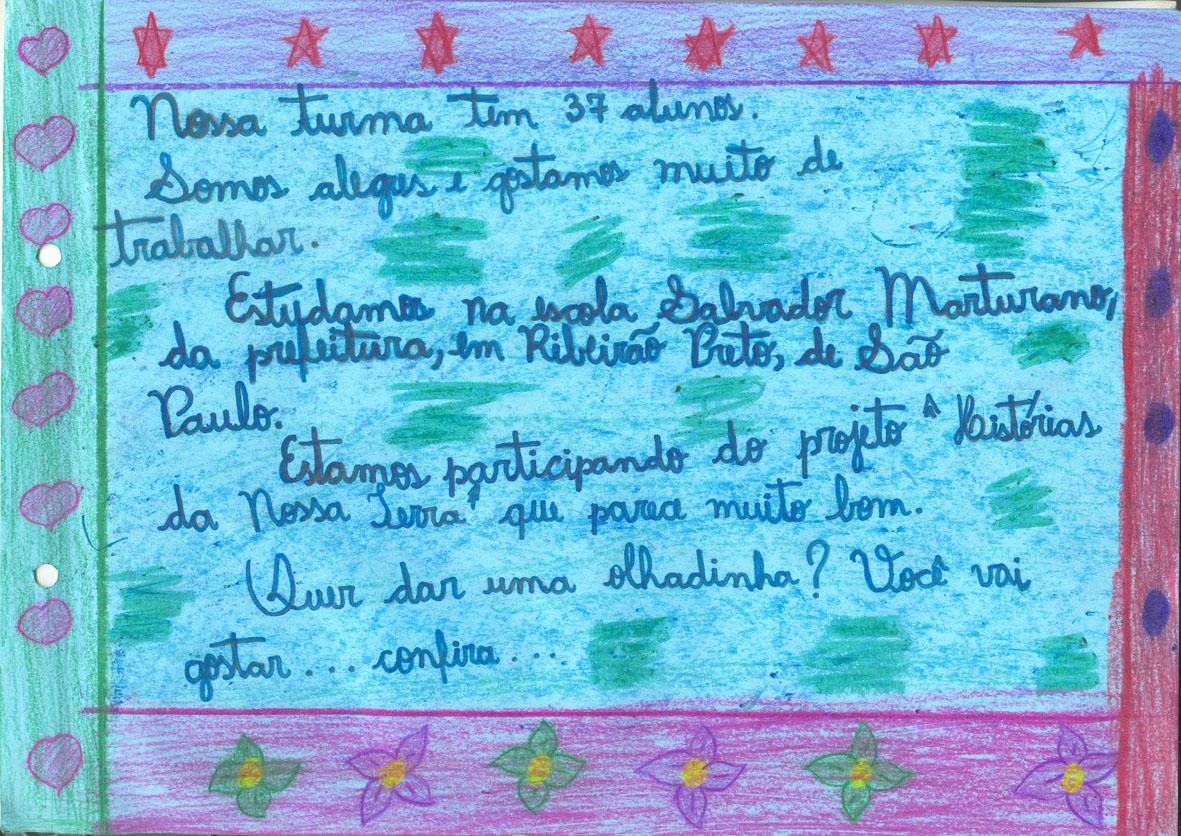 Nossa turma tem 37 alunos.
Somos alegres e gostamos muito de
trabalhar.
Estudamos na escola Salvador Marturano,
da prefeitura, em Ribeirão Preto, de São
Paulo.
Estamos participando do projeto " Histórias
da Nossa Terra" que parece muito bom.
Quer dar uma olhadinha? Você vai
gostar... confira...